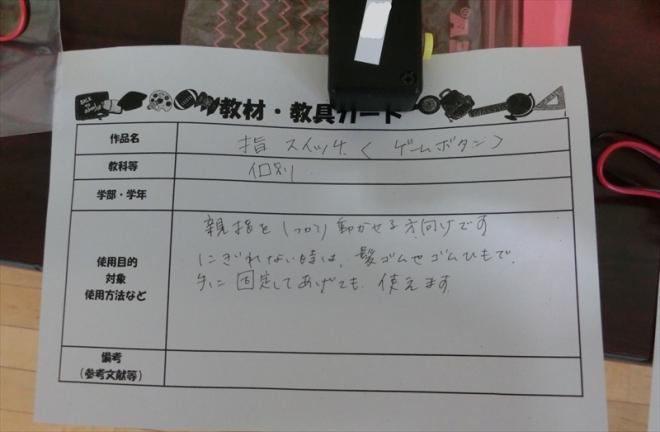 教材・教具カード
作品名 指スイッチ（ゲームボタン）
教科等 個別
学部・学年
使用目的
対象
使用方法など
親指をしっかり動かせる方向けです
にぎれない時は、髪ゴムやゴムひもで、
手に固定してあげても、使えます
備考
（参考文献等）